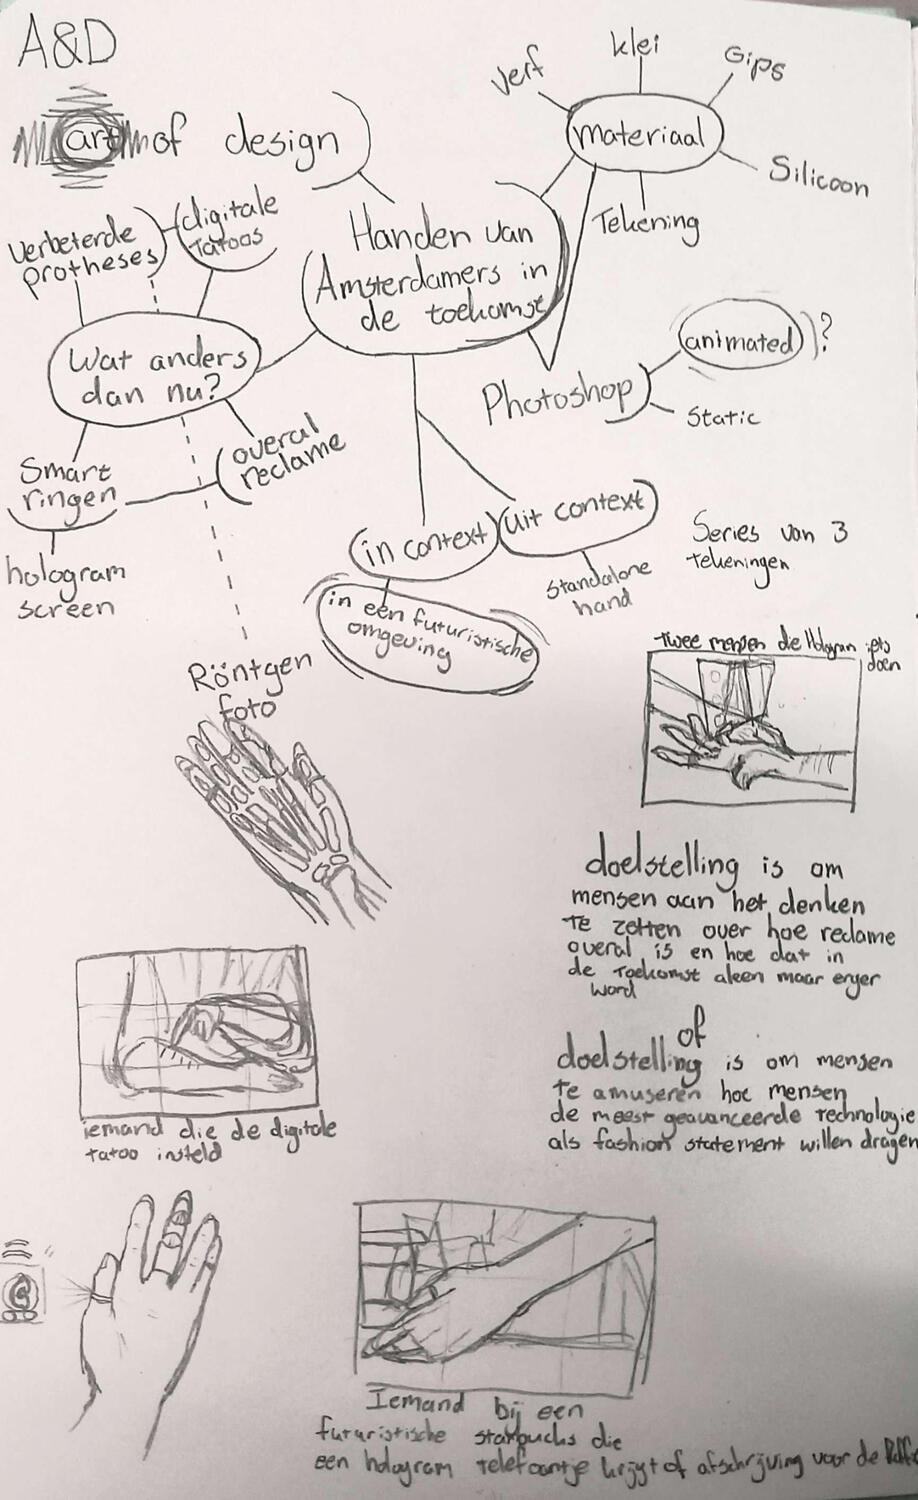 A&D
art of design
verf
klei
Gips
materiaal
Silicoon
Tekening
Verbeterde
protheses
digitale
Tatoos
Handen van
Amsterdamers in
de toekomst
Wat anders
dan nu?
animated ?
Photoshop
Static
Smart
ringen
overal
reclame
hologram
screen
in context
uit context
Series van 3
tekeningen
Standalone
hand
in een futuristische
omgeving
Röntgen
foto
twee mensen die Hologram iets
doen
doelstelling is om
mensen aan het denken
te zetten over hoe reclame
overal is en hoe dat in
de toekomst aleen maar erger
word
of
doelstelling is om mensen
te amuseren hoe mensen
de meest geavanceerde technologie
als fashion statement willen dragen
iemand die de digitale
tatoo insteld
Iemand bij een
futuristische starbucks die
een hologram telefoontje krijgt of afschrijving voor de